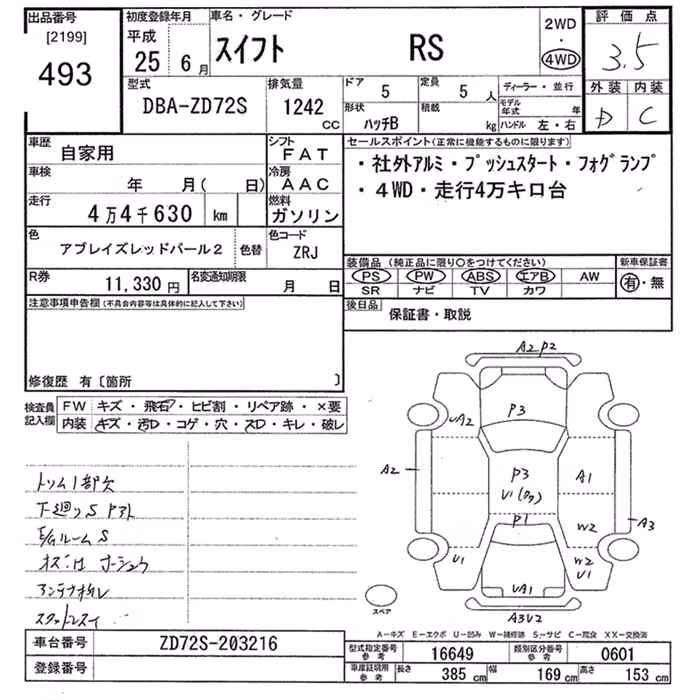 出品番号 初度登録年月 車名・グレード 2WD 評価点
[2199] 平成 ・
493 25 6月 スイフト RS 4WD 3.5
型式 排気量 ドア 定員 ディーラー・並行 外装 内装
DBA-ZD72S 1242 CC 5 5人 モデル年式 年 D C
形状 積載 ハンドル 左・右
ハッチB kg
車歴 自家用 シフト FAT セールスポイント(正常に機能するものに限ります)
車検 年 月( 日) 冷房 AAC ・社外アルミ・プッシュスタート・フォグランプ
走行 4万4千630 km 燃料 ガソリン ・4WD・走行4万キロ台
色 アブレイズレッドパール2 色替 色コード ZRJ
装備品(純正品に限り○をつけてください) 新車保証書
R券 11,330円 名変通知期限 月 日 PS PW ABS エアB AW 有・無
SR ナビ TV カワ
注意事項申告欄(不具合内容等は具体的に記入して下さい) 後日品 保証書・取説
修復歴 有〔箇所 〕
検査員記入欄 FW キズ・飛石・ヒビ割・リペア跡・×要
内装 キズ・汚D・コゲ・穴・スD・キレ・破レ
A2 P2
P3
UA2
A2 P3 A1
U1
トリム1部欠
P1 W2 A3
下廻りS
ルームS
U1 W2
U1
UA1
スペア A3U2
A-キズ E-エクボ U-凹み W-補修跡 S-サビ C-腐食 XX-交換済
車台番号 ZD72S-203216 型式指定番号 参考 16649 類別区分番号 参考 0601
登録番号 車庫証明用 参考 長さ 385cm 幅 169cm 高さ 153cm